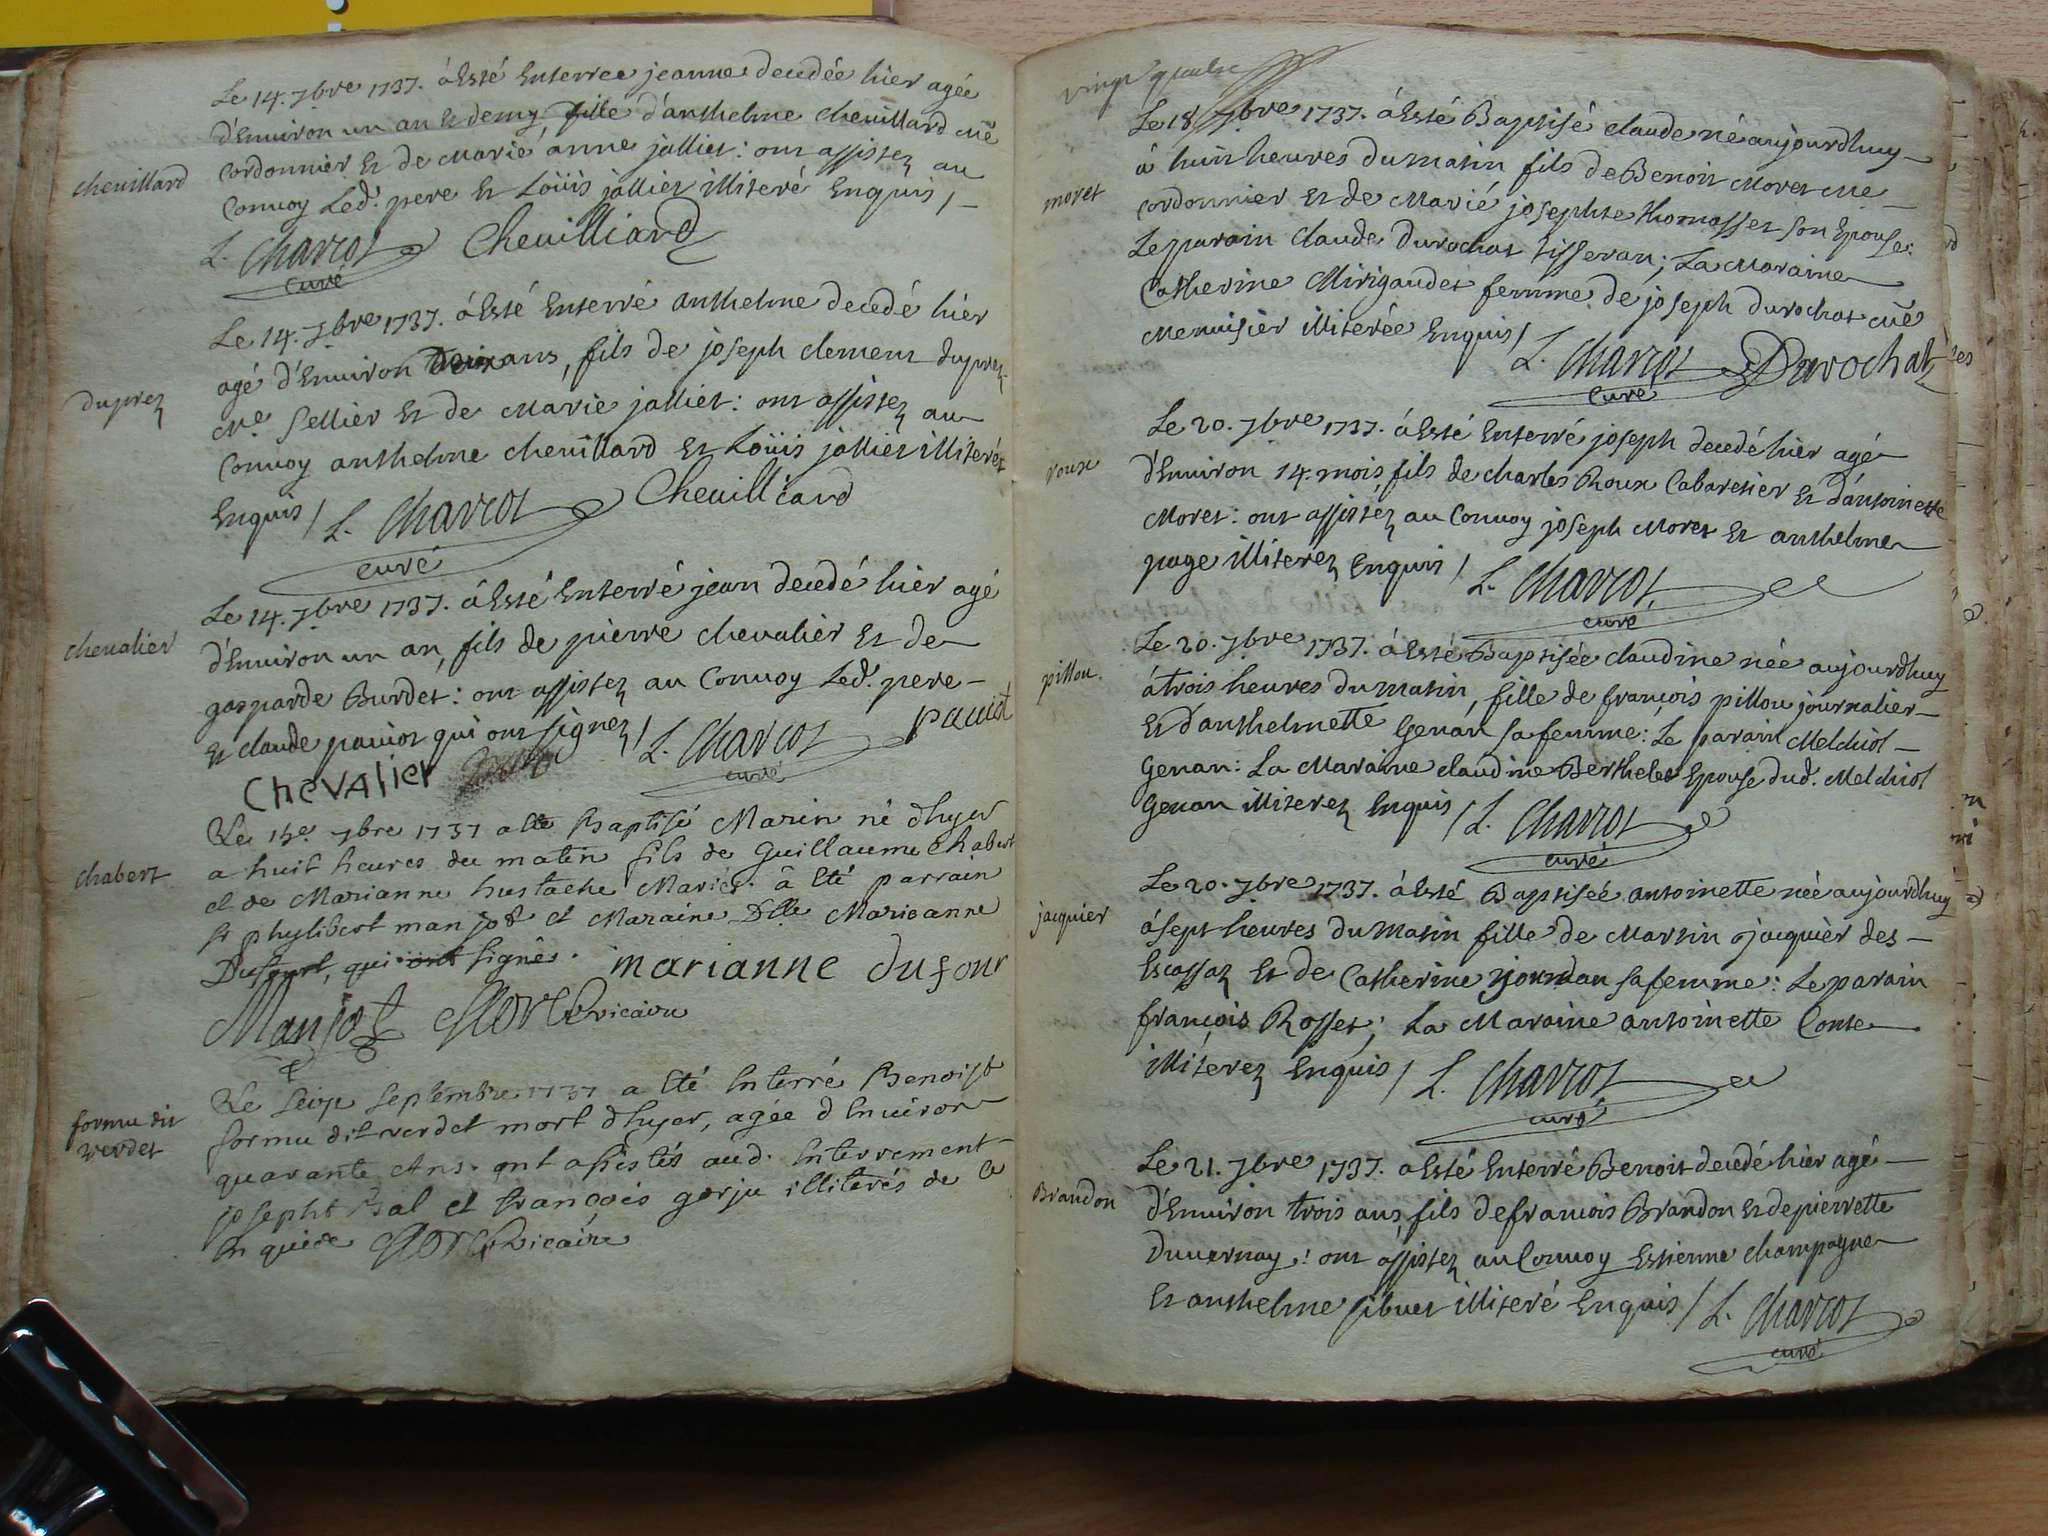 Le 14. 7bre 1737. à Esté Enterree jeanne decedée hier agée
d'Environ un an et demy, fille d'anthelme chevillard me
Cordonnier et de Marie anne jallier: ont assistez au
chevillard
Convoy Led. pere et Loüis jallier illiteré Enquis /
L. Charcot Chevilliard
curé
Le 14. 7bre 1737. à Esté Enterré anthelme decedé hier
agé d'Environ ans, fils de joseph clement duprez
duprez
me. sellier et de Marie jallier: ont assistez au
Convoy anthelme chevillard et Loüis jallier illiterés
Enquis / L. Charcot Chevilliard
curé
Le 14. 7bre 1737. à Esté Enterré jean decedé hier agé
chevalier
d'Environ un an, fils de pierre chevalier et de
gasparde Burdet: ont assistez au Convoy Led. pere
et claude paviot qui ont signez / L. Charcot paviot
curé
CheVAlier
Le 15e 7bre 1737 a été Baptisé Marin né d'hyer
chabert
a huit heures du matin fils de Guillaume Chabert
et de Marianne hustache Mariés. à été parrain
sr phylibert manjot et Maraine Dlle Marieanne
Dufourt, qui ont signés. marianne dufour
Manjot vicaire
Le seize septembre 1737 a été Enterré Benoist
formu dit
verdet
formu dit verdet mort d'hyer, agée d'Environ
quarante Ans. ont assistés aud. Interrement
josepht Bal et françois gorju illiterés de ce
Enquise vicaire
vingt quatre
Le 18 7bre 1737. à Esté Baptisé claude né aujourdhuy
à huit heures du matin fils de Benoit Moret me
moret
cordonnier et de Marie josephte thomasset son Epouse:
Le parain claude Durochat tisseran; La Maraine
Catherine Mirigaudet femme de joseph durochat me
Menuisier illiterée Enquis / L. Charcot Durochat
curé
Le 20. 7bre 1737. à Esté Enterré joseph decedé hier agé
roux
d'Environ 14. mois, fils de charles Roux Cabaretier et d'antoinette
Moret: ont assistez au Convoy joseph Moret et anthelme
page illiterez Enquis / L. Charcot
curé
Le 20. 7bre 1737. à Esté Baptisée claudine née aujourdhuy
pillou.
à trois heures du matin, fille de françois pillou journalier
et d'anthelmette Genan sa femme: Le parain Melchiol
Genan: La Maraine claudine Berthelet Epouse dud. Melchiol
Genan illiterez Enquis / L. Charcot
curé
Le 20. 7bre 1737. à Esté Baptiseé antoinette née aujourdhuy
jacquier
à sept heures du matin fille de Martin jacquier des
Escassaz et de Catherine jourdan sa femme: Le parain
françois Rosset; La Maraine antoinette Conte
illiterez Enquis / L. Charcot
curé
Le 21. 7bre 1737. a Esté Enterré Benoit decedé hier agé
Brandon
d'Environ trois ans, fils de francois Brandon et de pierrette
Duvernay: ont assistez au Convoy Estienne champagne
et anthelme sibuet illiteré Enquis / L. Charcot
curé